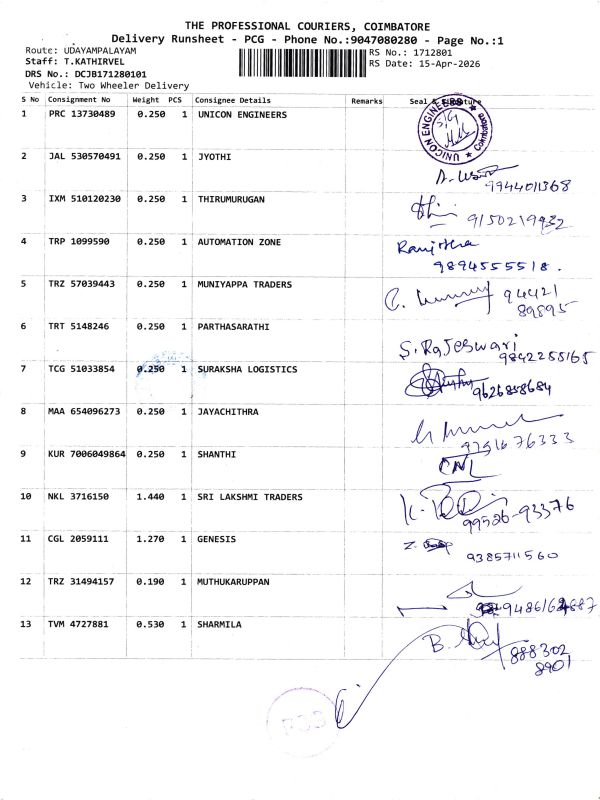 THE PROFESSIONAL COURIERS, COIMBATORE
Delivery Runsheet - PCG - Phone No.:9047080280 - Page No.:1
Route: UDAYAMPALAYAM
RS No.: 1712801
Staff: T.KATHIRVEL
RS Date: 15-Apr-2026
DRS No.: DCJB171280101
Vehicle: Two Wheeler Delivery
S No Consignment No Weight PCS Consignee Details Remarks Seal & Signature
1 PRC 13730489 0.250 1 UNICON ENGINEERS
UNICON ENGINEERS Coimbatore
2 JAL 530570491 0.250 1 JYOTHI
9944011368
3 IXM 510120230 0.250 1 THIRUMURUGAN
9150219932
4 TRP 1099590 0.250 1 AUTOMATION ZONE
Ranjitha
9894555518.
5 TRZ 57039443 0.250 1 MUNIYAPPA TRADERS
94421
89895
6 TRT 5148246 0.250 1 PARTHASARATHI
S. Rajeswari
9842255165
7 TCG 51033854 0.250 1 SURAKSHA LOGISTICS
9626858684
8 MAA 654096273 0.250 1 JAYACHITHRA
9791676333
9 KUR 7006049864 0.250 1 SHANTHI
10 NKL 3716150 1.440 1 SRI LAKSHMI TRADERS
99526-93376
11 CGL 2059111 1.270 1 GENESIS
9385711560
12 TRZ 31494157 0.190 1 MUTHUKARUPPAN
13 TVM 4727881 0.530 1 SHARMILA
888302
8901